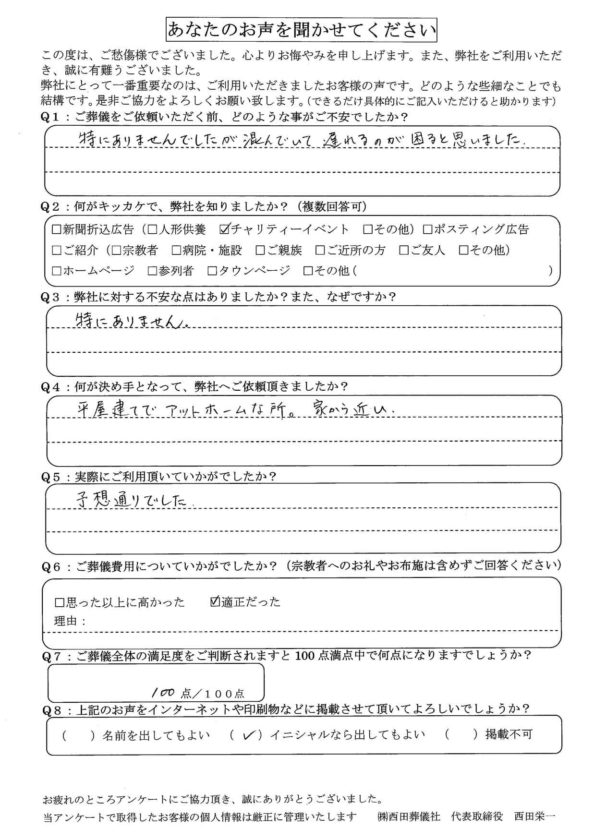 あなたのお声を聞かせてください
この度は、ご愁傷様でございました。心よりお悔やみを申し上げます。また、弊社をご利用いただ
き、誠に有難うございました。
弊社にとって一番重要なのは、ご利用いただきましたお客様の声です。どのような些細なことでも
結構です。是非ご協力をよろしくお願い致します。（できるだけ具体的にご記入いただけると助かります）
Q1：ご葬儀をご依頼いただく前、どのような事がご不安でしたか？
特にありませんでしたが混んでいて遅れるのが困ると思いました.
Q2：何がキッカケで、弊社を知りましたか？（複数回答可）
□新聞折込広告（□人形供養 ☑チャリティーイベント □その他）□ポスティング広告
□ご紹介（□宗教者 □病院・施設 □ご親族 □ご近所の方 □ご友人 □その他）
□ホームページ □参列者 □タウンページ □その他（ ）
Q3：弊社に対する不安な点はありましたか？また、なぜですか？
特にありません.
Q4：何が決め手となって、弊社へご依頼頂きましたか？
平屋建てでアットホームな所。家から近い.
Q5：実際にご利用頂いていかがでしたか？
予想通りでした
Q6：ご葬儀費用についていかがでしたか？（宗教者へのお礼やお布施は含めずご回答ください）
□思った以上に高かった ☑適正だった
理由：
Q7：ご葬儀全体の満足度をご判断されますと100点満点中で何点になりますでしょうか？
100点／100点
Q8：上記のお声をインターネットや印刷物などに掲載させて頂いてよろしいでしょうか？
（ ）名前を出してもよい （✓）イニシャルなら出してもよい （ ）掲載不可
お疲れのところアンケートにご協力頂き、誠にありがとうございました。
当アンケートで取得したお客様の個人情報は厳正に管理いたします ㈱西田葬儀社 代表取締役 西田栄一